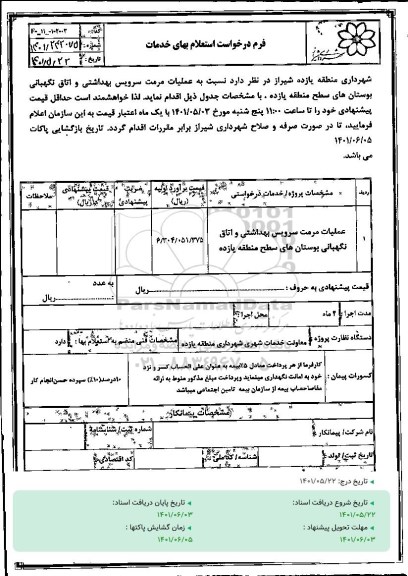 فرم درخواست استعلام بهای خدمات
شهرداری منطقه یازده شیراز در نظر دارد نسبت به عملیات مرمت سرویس بهداشتی و اتاق نگهبانی
بوستان های سطح منطقه یازده ، با مشخصات جدول ذیل اقدام نماید. لذا خواهشمند است حداقل قیمت
پیشنهادی خود را تا ساعت ۱۱:۰۰ پنج شنبه مورخ ۱۴۰۱/۰۵/۰۳ با یک ماه اعتبار قیمت به این سازمان اعلام
فرمایید، تا در صورت صرفه و صلاح شهرداری شیراز برابر مقررات اقدام گردد. تاریخ بازگشایی پاکات
۱۴۰۱/۰۶/۰۵
می باشد.
ردیف مشخصات پروژه/خدمات درخواستی قیمت برآورد اولیه (ریال) ضریب پیشنهادی قیمت پیشنهادی (ریال) ملاحظات
۱ عملیات مرمت سرویس بهداشتی و اتاق نگهبانی بوستان های سطح منطقه یازده ۶/۳۰۴/۰۵۱/۳۷۵
قیمت پیشنهادی به حروف : ریال به عدد ریال
مدت اجرا ۴ ماه محل اجرا
دستگاه نظارت پروژه : معاونت خدمات شهری شهرداری منطقه یازده مشخصات فنی منضم به استعلام بها : دارد
کسورات پیمان : کارفرما از هر پرداخت معادل ۵٪بیمه به عنوان علی الحساب کسر و نزد
خود به امانت نگهداری مینماید وپرداخت مبلغ مذکور منوط به ارائه
مفاصاحساب بیمه از سازمان بیمه تامین اجتماعی میباشد
۱۰درصد(۱۰٪) سپرده حسن انجام کار
مشخصات پیمانکار
نام شرکت/ پیمانکار شماره ثبت/ شناسنامه
تاریخ ثبت/ تولد شناسه/ کد ملی کد اقتصادی
ParsNamadData
تاریخ درج: ۱۴۰۱/۰۵/۲۲
تاریخ شروع دریافت اسناد: تاریخ پایان دریافت اسناد:
۱۴۰۱/۰۵/۲۲ ۱۴۰۱/۰۶/۰۳
مهلت تحویل پیشنهاد : زمان گشایش پاکتها :
۱۴۰۱/۰۶/۰۳ ۱۴۰۱/۰۶/۰۵